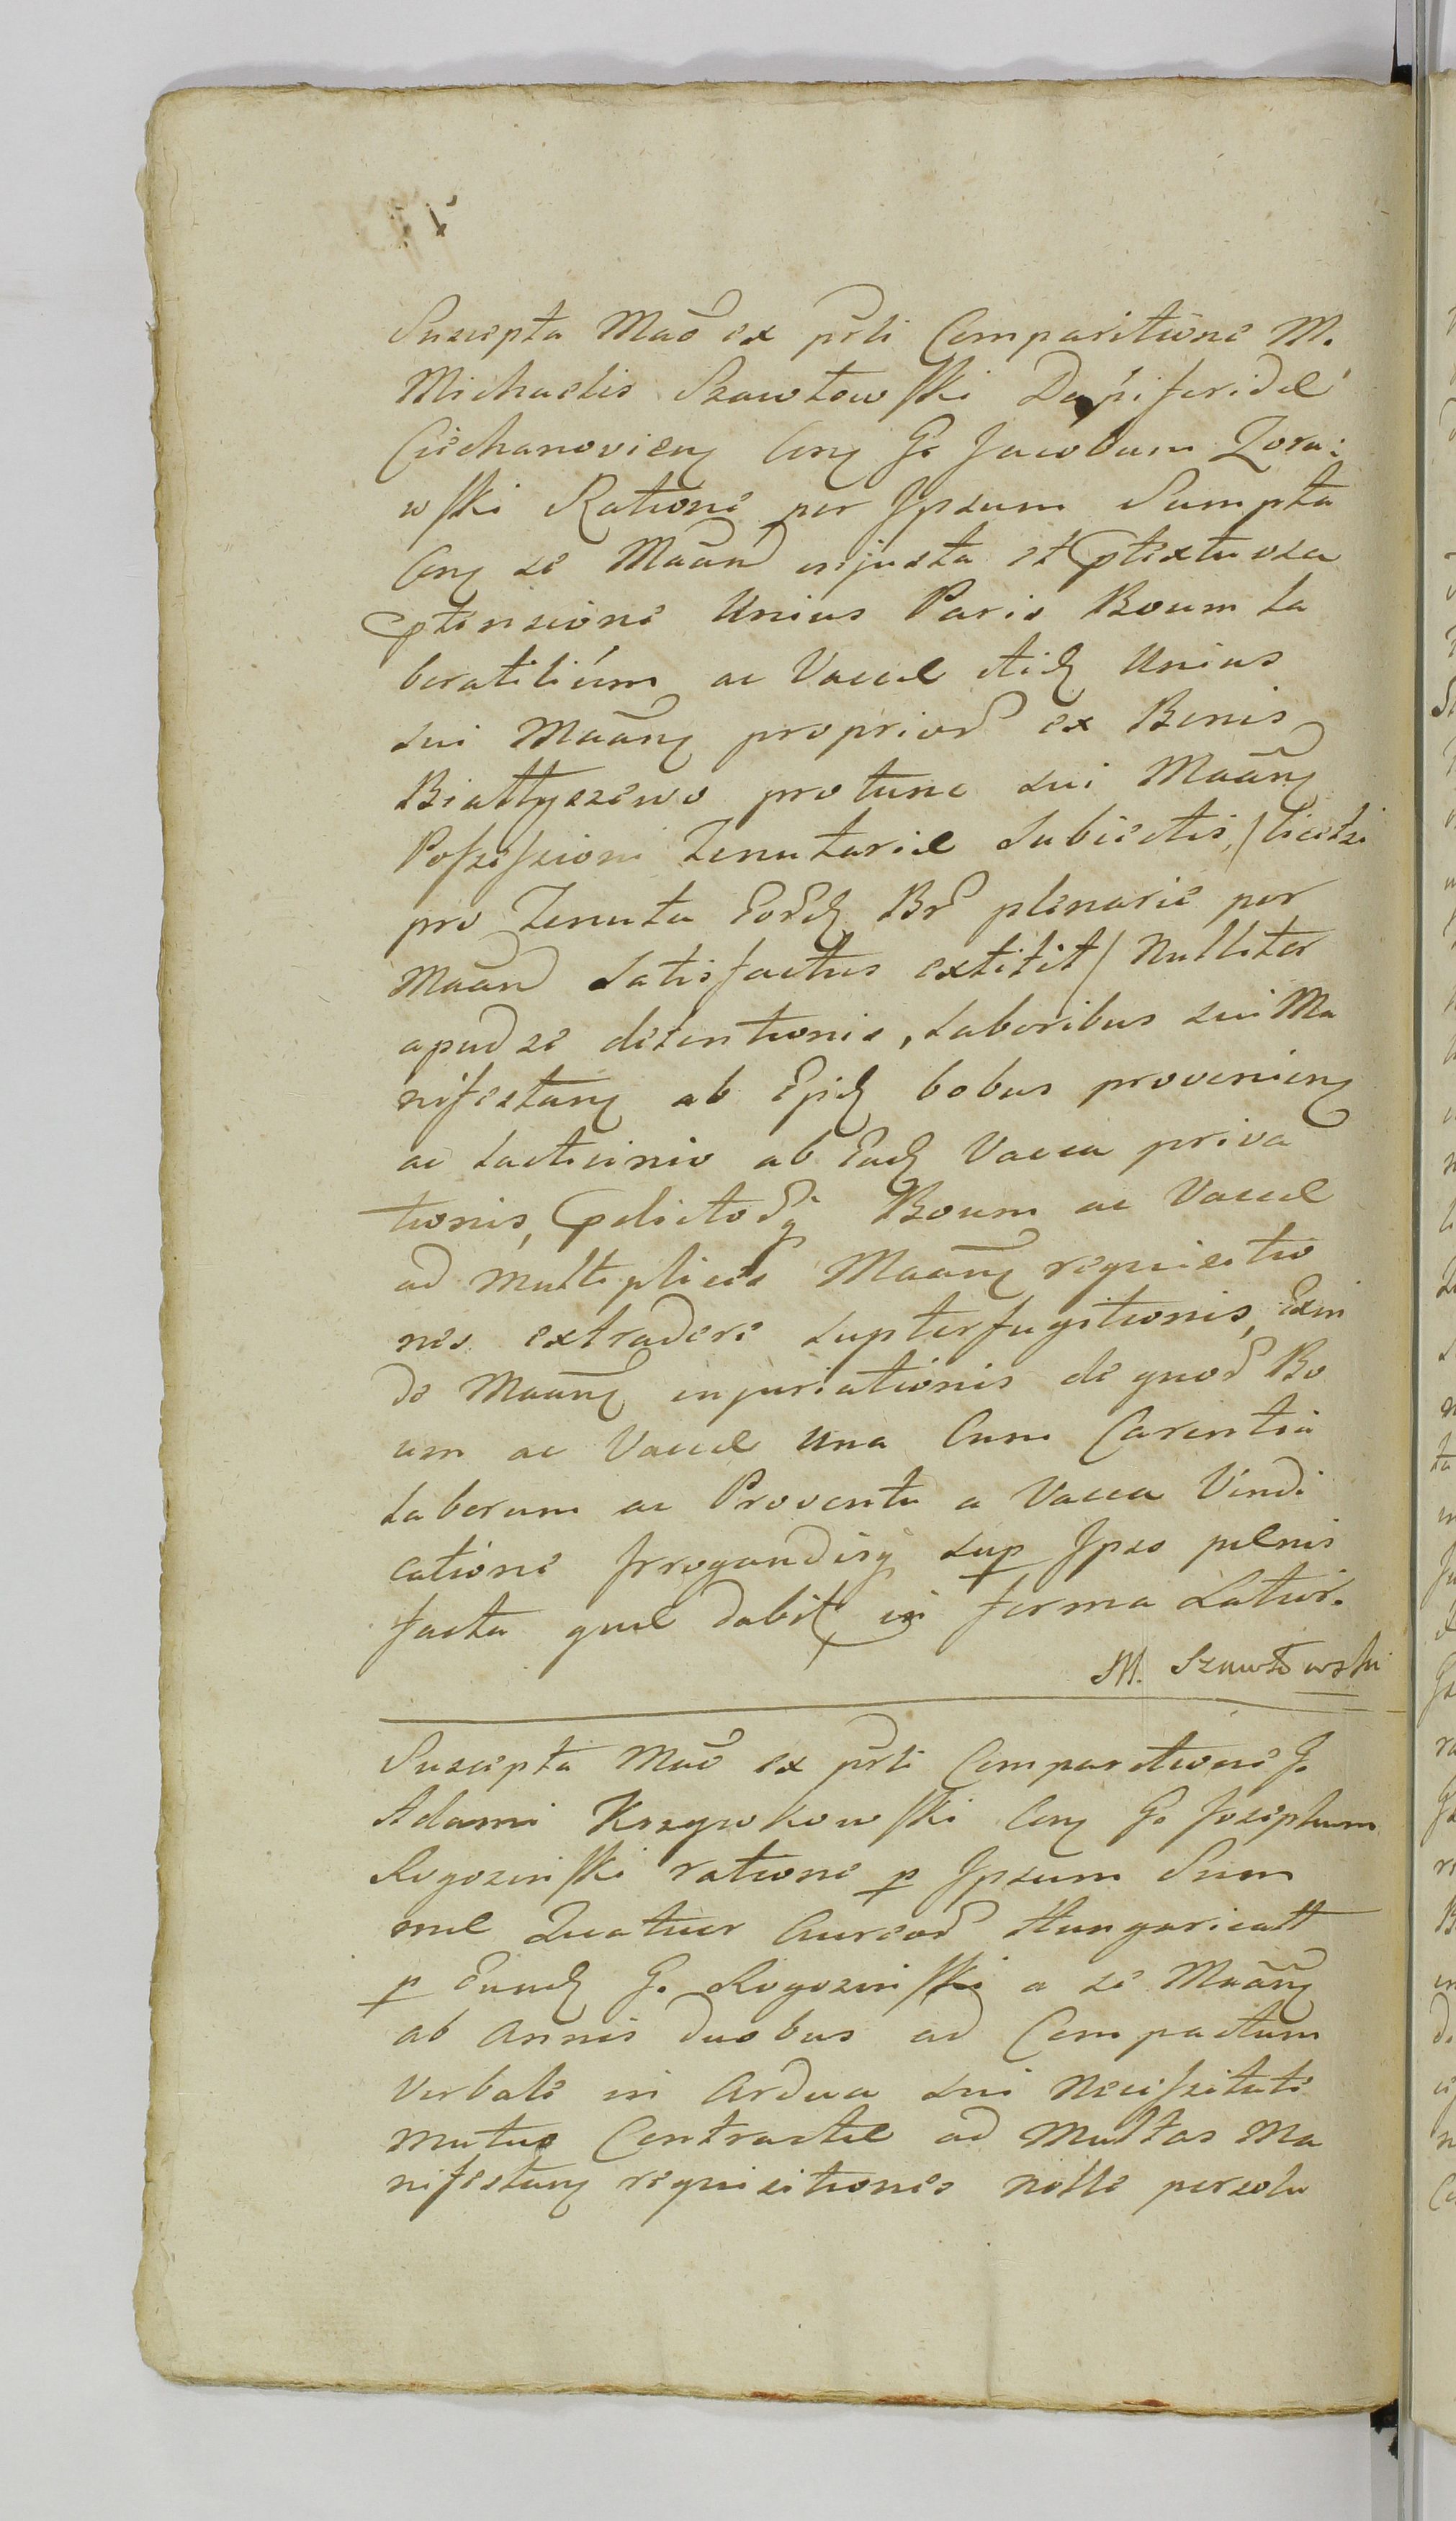 Suscepta Maõ ex pñti Comparitione M.
Michaelis Szawłowski Dapiferidae
Ciechanovien Con G. Jacobum Zora:
wski Ratione per Ipsum Sumpta
Con se Maan injusta et ptextuosa
ptensione Unius Paris Boum La
boratilium ac Vaccae itid Unius
sui Maan proprior ex Bonis
Białłyszewo protunc sui Maan
Possessioni Tenutariae Subiectis, /licet si
pro Tenuta Eord Br plenarie per
Maan Satisfactus extitit/ Nulliter
apud se detentionis, Laboribus sui Ma
nifestan ab Epid bobus provenien
ac Lacticinio ab Ead Vacca priva
tionis, pdictorq Boum ac Vaccae
ad multiplices Maan requisitio
nes extradere Supterfugitionis, Exin
de Maan injuriationis de quor Bo
um ac Vaccae Una Cum Carentia
Laborum ac Proventu a Vacca Vindi
catione Irrogandisq sup Ipso paenis
facta quae dabit in forma Latior.
M. Szawłowski
Suscepta Maõ ex pñti Comparitione G.
Adami Krzywkowski Con G. Josephum
Rogozinski ratione p Ipsum Sum
mae Quatuor Aureor Hungaricall
p Eund G. Rogozinski a se Maan
ab Annis duobus ad Compactum
Verbale in Ardua sui Necessitate
mutuo Contractae ad Multas Ma
nifestan requisitiones nolle persolu